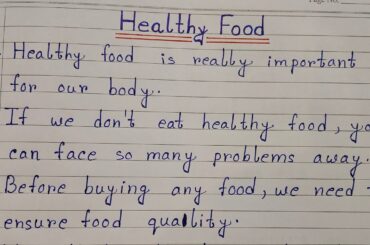 Healthy Food
Healthy food is really important
for our body.
If we don't eat healthy food,
can face so many problems away.
Before buying any food, we need
ensure food quality.